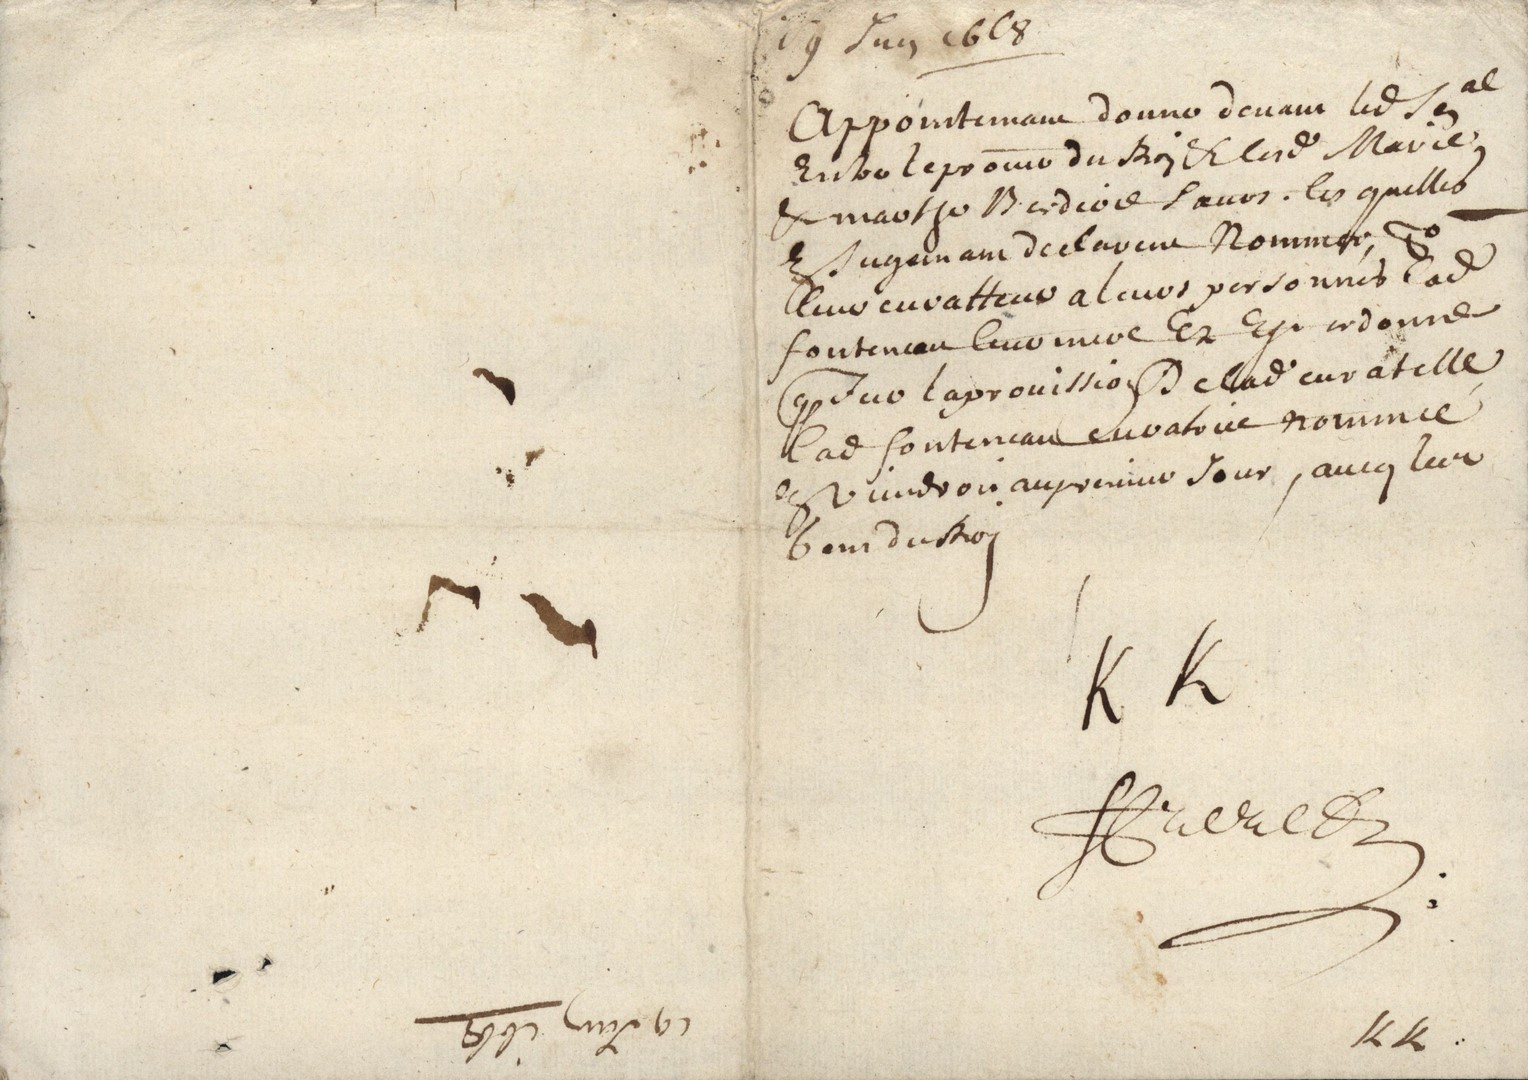 19 Juin 1668
Appointemant donné devant led Senal
Entre le procureur du Roy & lesd Marie
& marthe sœurs . lesquelles
Jugemant declarent Nommer, po
leur curatteur a leurs personnes lad
fonteneau leur mere Et ordonne
que sur la provission De lad curatelle
lad fonteneau curatrice nommee
viendroit au premier Jour, avecq leur
gens du Roy
K K
KK .
19 Juin 1668